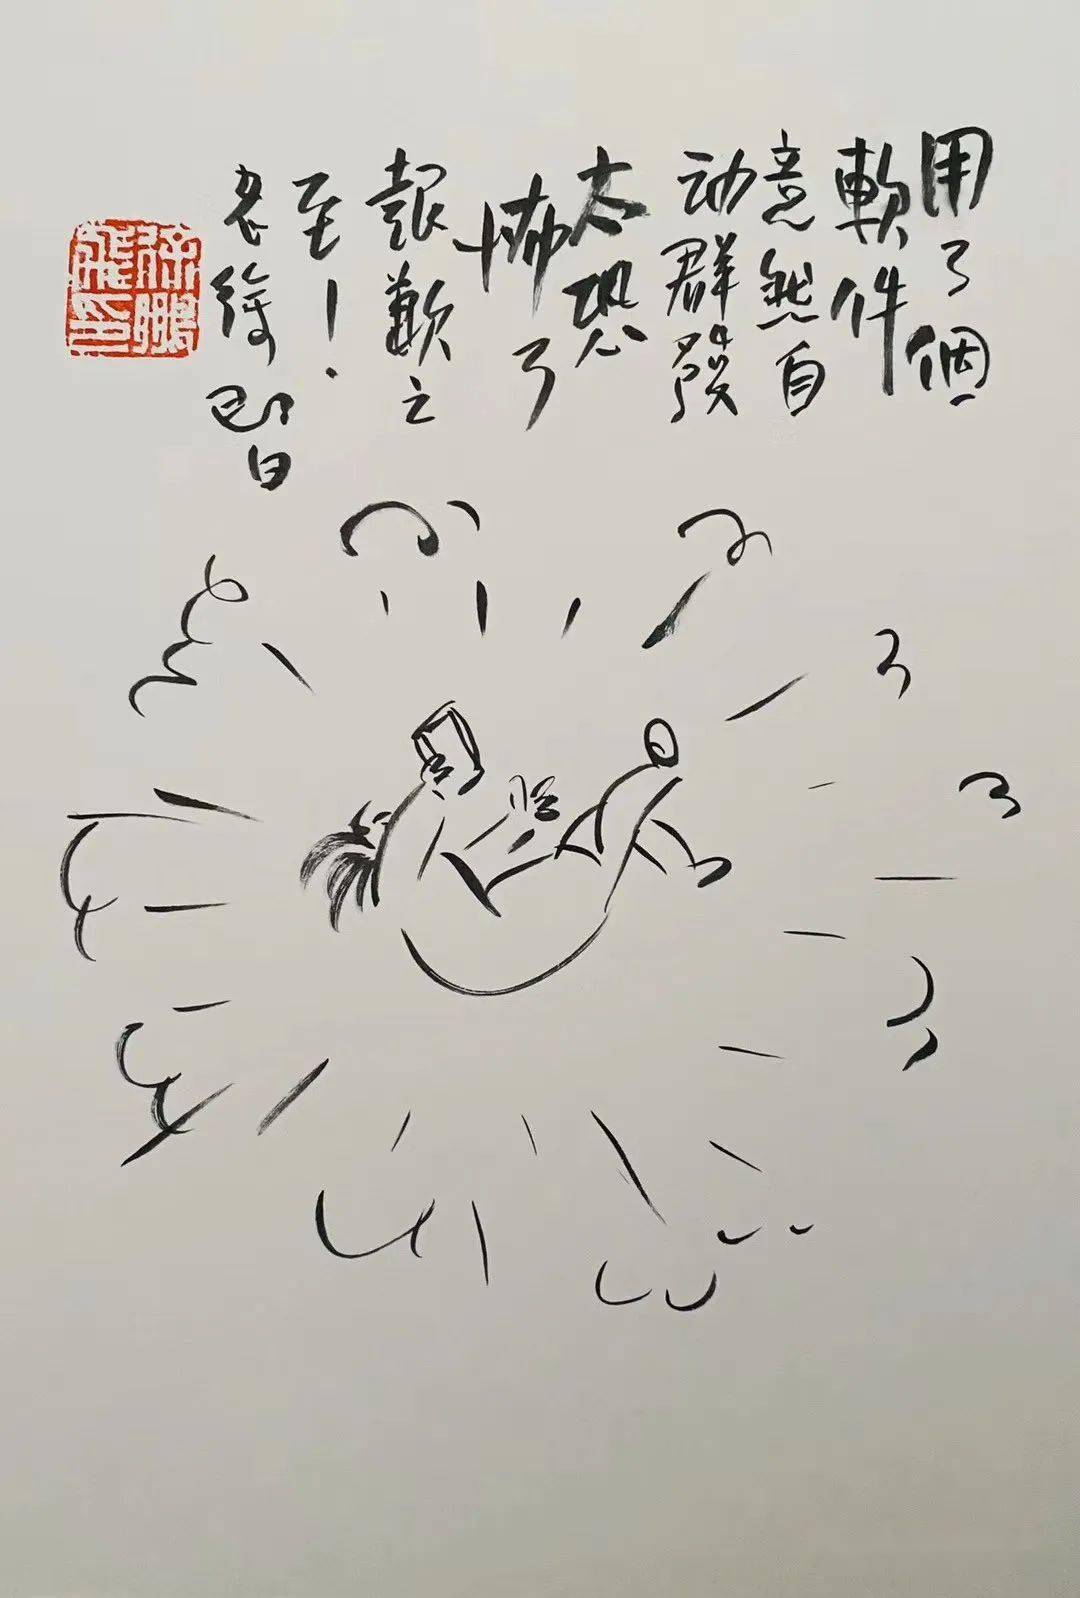 用了個
軟件
竟然自
动群發
太恐
怖了
報歉之
至！
老徐即日
徐鵬
飛印